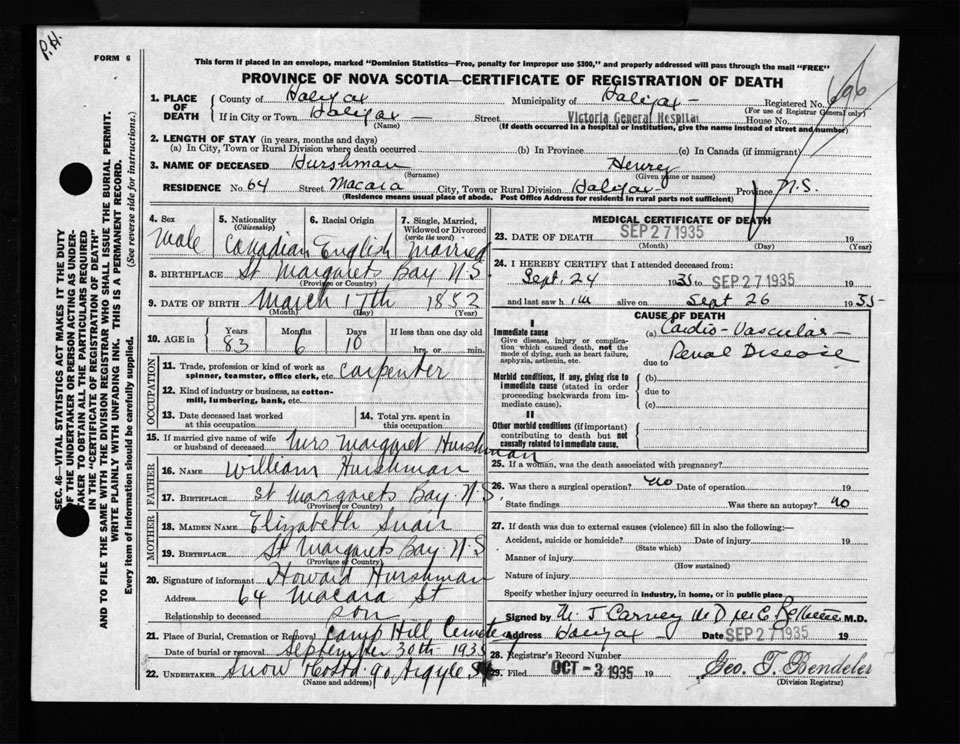 P.H.
FORM 6
This form if placed in an envelope, marked "Dominion Statistics—Free, penalty for improper use $300," and properly addressed will pass through the mail "FREE"
PROVINCE OF NOVA SCOTIA—CERTIFICATE OF REGISTRATION OF DEATH
1. PLACE OF DEATH County of Halifax Municipality of Halifax Registered No. 696
(For use of Registrar General only)
If in City or Town Halifax Street Victoria General Hospital House No.
(Name) (If death occurred in a hospital or institution, give the name instead of street and number)
2. LENGTH OF STAY (in years, months and days)
(a) In City, Town or Rural Division where death occurred (b) In Province (c) In Canada (if immigrant)
3. NAME OF DECEASED Hurshman Henrey
(Surname) (Given name or names)
RESIDENCE No. 64 Street Macara City, Town or Rural Division Halifax Province N.S.
(Residence means usual place of abode. Post Office Address for residents in rural parts not sufficient)
SEC. 46—VITAL STATISTICS ACT MAKES IT THE DUTY
OF THE UNDERTAKER OR PERSON ACTING AS UNDER-
TAKER TO OBTAIN ALL THE PARTICULARS REQUIRED
IN THE "CERTIFICATE OF REGISTRATION OF DEATH"
AND TO FILE THE SAME WITH THE DIVISION REGISTRAR WHO SHALL ISSUE THE BURIAL PERMIT.
WRITE PLAINLY WITH UNFADING INK. THIS IS A PERMANENT RECORD.
Every item of information should be carefully supplied. (See reverse side for instructions.)
4. Sex
Male
5. Nationality
(Citizenship)
Canadian
6. Racial Origin
English
7. Single, Married, Widowed or Divorced
(write the word)
Married
8. BIRTHPLACE St Margarets Bay N.S.
(Province or Country)
9. DATE OF BIRTH March 17th 1852
(Month) (Day) (Year)
10. AGE in Years 83 Months 6 Days 10 If less than one day old
hrs. or min.
OCCUPATION
11. Trade, profession or kind of work as
spinner, teamster, office clerk, etc. Carpenter
12. Kind of industry or business, as cotton-
mill, lumbering, bank, etc.
13. Date deceased last worked
at this occupation
14. Total yrs. spent in
this occupation
15. If married give name of wife
or husband of deceased Mrs Margaret Hurshman
FATHER
16. NAME William Hurshman
17. BIRTHPLACE St Margarets Bay. N.S.
(Province or Country)
MOTHER
18. MAIDEN NAME Elizabeth Snair
19. BIRTHPLACE St Margarets Bay N.S
(Province or Country)
20. Signature of informant Howard Hurshman
Address 64 Macara St
Relationship to deceased son
21. Place of Burial, Cremation or Removal Camp Hill Cemetery
Date of burial or removal September 30th - 1935
22. UNDERTAKER Snow 90 Argyle St
(Name and address)
MEDICAL CERTIFICATE OF DEATH
23. DATE OF DEATH SEP 27 1935 19
(Month) (Day) (Year)
24. I HEREBY CERTIFY that I attended deceased from:
Sept. 24 1935 to SEP 27 1935
and last saw him alive on Sept 26 1935
CAUSE OF DEATH
I
Immediate cause
Give disease, injury or compli-
cation which caused death, not the
mode of dying, such as heart failure,
asphyxia, asthenia, etc.
(a) Cardio-Vascular-
due to Renal Disease
Morbid conditions, if any, giving rise to
immediate cause (stated in order
proceeding backwards from im-
mediate cause).
(b)
due to
(c)
II
Other morbid conditions (if important)
contributing to death but not
causally related to immediate cause.
25. If a woman, was the death associated with pregnancy?
26. Was there a surgical operation? no Date of operation 19
State findings Was there an autopsy? no
27. If death was due to external causes (violence) fill in also the following:—
Accident, suicide or homicide? Date of injury 19
(State which)
Manner of injury
(How sustained)
Nature of injury
Specify whether injury occurred in industry, in home, or in public place
Signed by M J Carney M D M.D.
Address Halifax Date SEP 27 1935 19
28. Registrar's Record Number
29. Filed OCT - 3 1935 19 Geo. T. Bendeler
(Division Registrar)